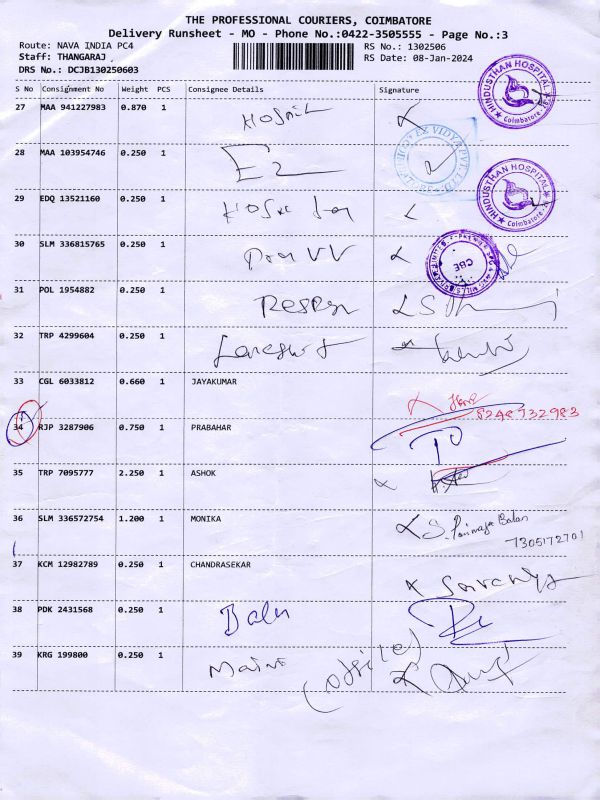 THE PROFESSIONAL COURIERS, COIMBATORE
Delivery Runsheet - MO - Phone No.:0422-3505555 - Page No.:3
Route: NAVA INDIA PC4 RS No.: 1302506
Staff: THANGARAJ RS Date: 08-Jan-2024
DRS No.: DCJB130250603
S No Consignment No Weight PCS Consignee Details Signature
27 MAA 941227983 0.870 1
HINDUSTHAN HOSPITAL Coimbatore
28 MAA 103954746 0.250 1
29 EDQ 13521160 0.250 1
HINDUSTHAN HOSPITAL Coimbatore
30 SLM 336815765 0.250 1
CBE
31 POL 1954882 0.250 1
32 TRP 4299604 0.250 1
33 CGL 6033812 0.660 1 JAYAKUMAR
8248732983
34 RJP 3287906 0.750 1 PRABAHAR
35 TRP 7095777 2.250 1 ASHOK
36 SLM 336572754 1.200 1 MONIKA
7305172701
37 KCM 12982789 0.250 1 CHANDRASEKAR
Saranya
38 PDK 2431568 0.250 1 Balu
39 KRG 199800 0.250 1